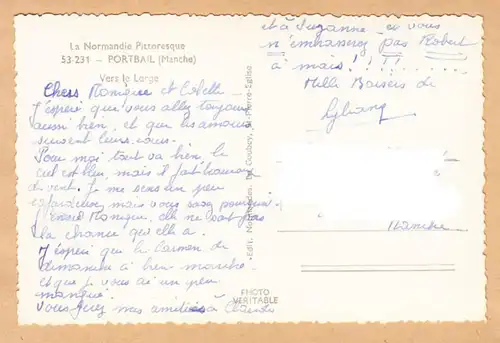 La Normandie Pittoresque
53-231 - PORTBAIL (Manche)
Vers le Large
Chers Monique et
J'espère que vous allez toujours
aussi bien, et que les amours
suivent leurs cours.
Pour moi tout va bien, le
ciel est bleu, mais il fait beaucoup
de vent. Je me sens un peu
mais vous savez pourquoi
Monique, elle ne sait pas
la chance qu'elle a.
J'espère que le
dimanche a bien marché
et que je vous ai un peu
manqué.
Vous mes amitiés à
et à Suzanne et vous
n'embrassez pas Robert
à mais ! ! ! ! !
Mille Baisers de
Manche
Edit. Normandes, Le Goubey, St-Pierre-Eglise
PHOTO
VERITABLE